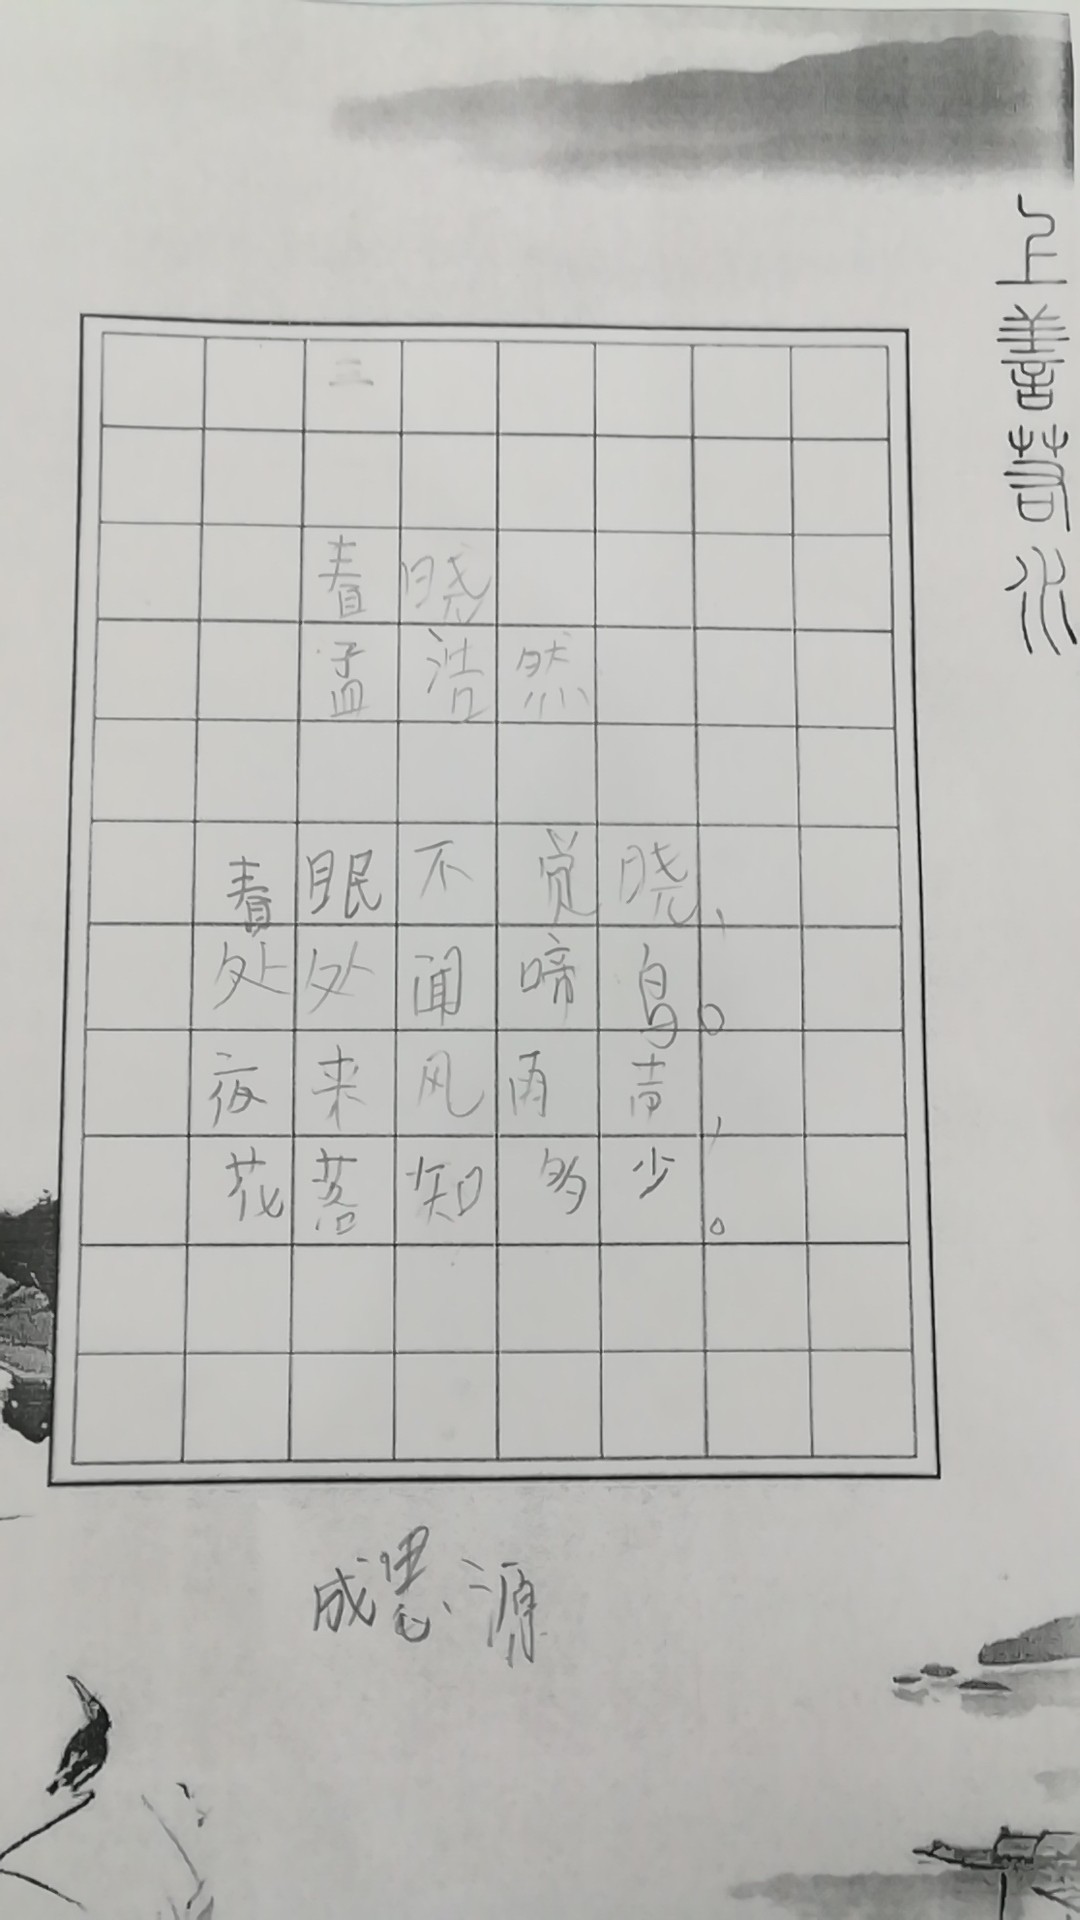 上善若水
三
春晓
孟浩然
春眠不觉晓，
处处闻啼鸟。
夜来风雨声，
花落知多少。
成思源